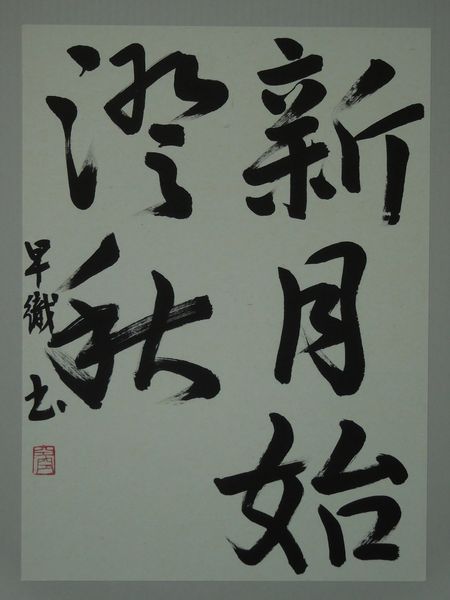 新月始
澄秋
早織書